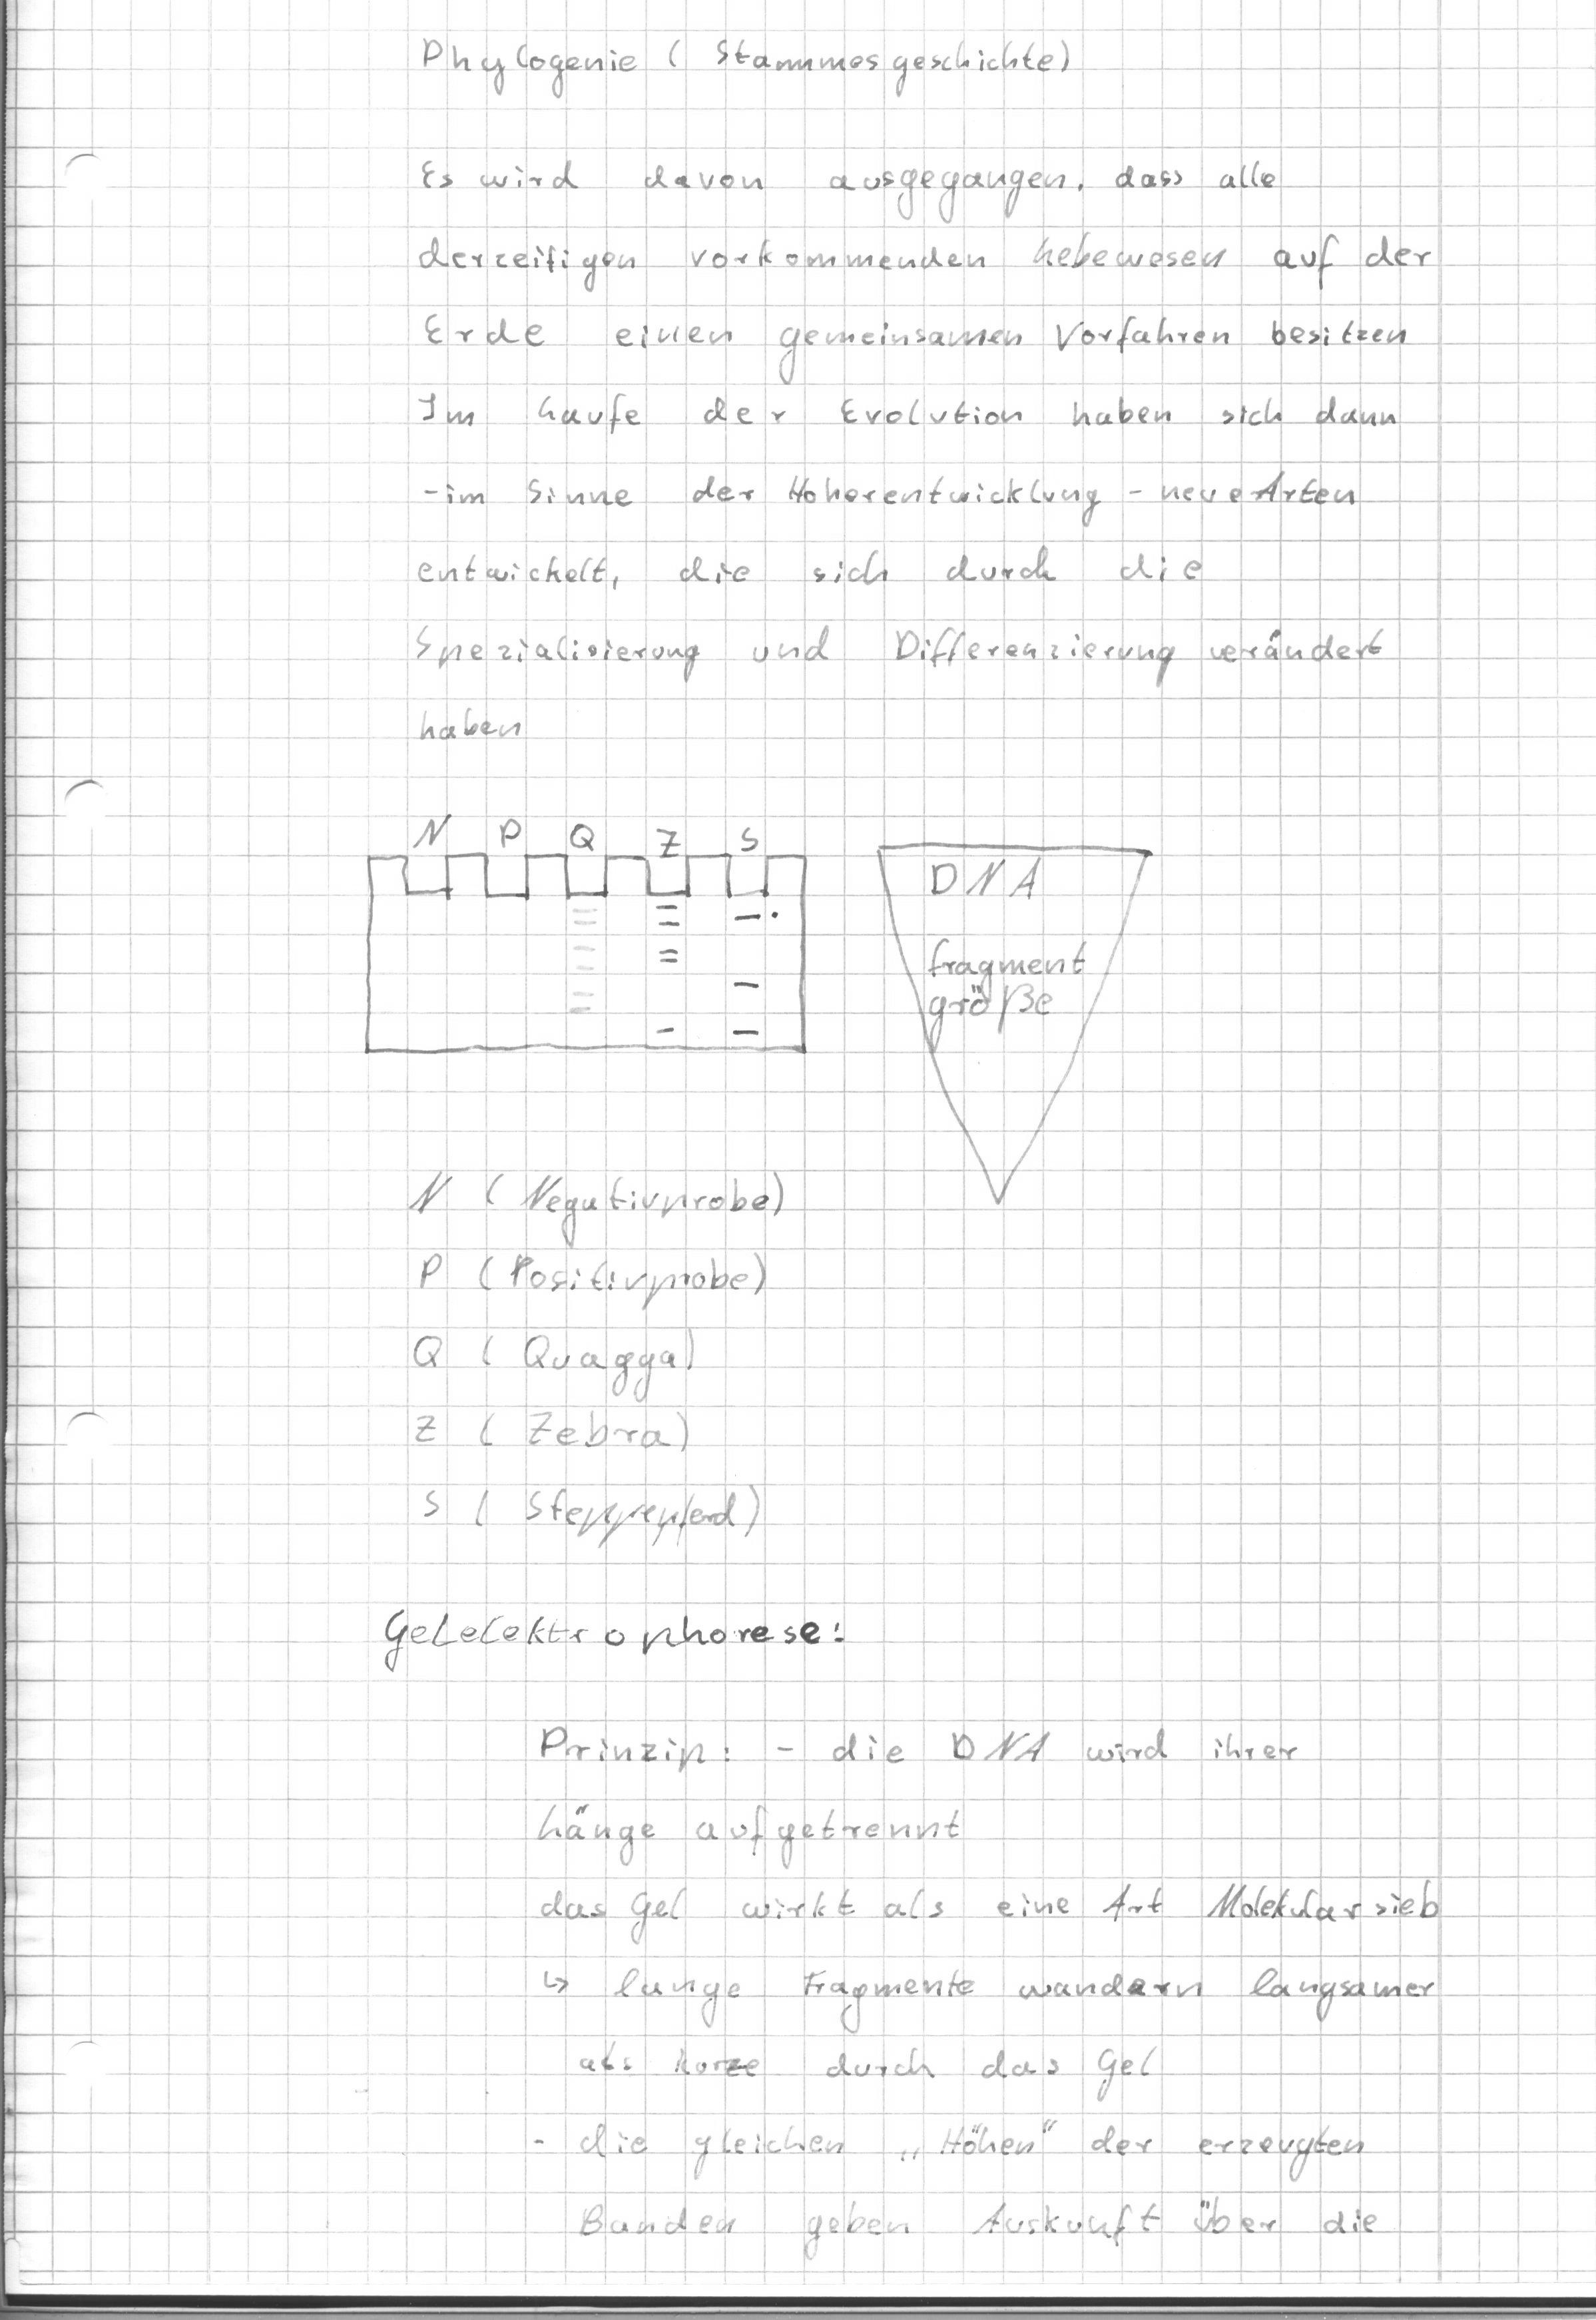 Phylogenie ( Stammesgeschichte)
Es wird davon ausgegangen, dass alle
derzeitigen vorkommenden Lebewesen auf der
Erde einen gemeinsamen Vorfahren besitzen
Im Laufe der Evolution haben sich dann
-im Sinne der Hoherentwicklung - neue Arten
entwickelt, die sich durch die
Spezialisierung und Differenzierung verändert
haben
N P Q Z S
DNA
fragment
größe
N ( Negativprobe)
P ( Positivprobe)
Q ( Quagga)
Z ( Zebra)
S ( Steppenpferd)
Gelelektrophorese:
Prinzip: - die DNA wird ihrer
Länge aufgetrennt
das Gel wirkt als eine Art Molekularsieb
↳ lange Fragmente wandern langsamer
als kurze durch das Gel
- die gleichen „Höhen" der erzeugten
Banden geben Auskunft über die